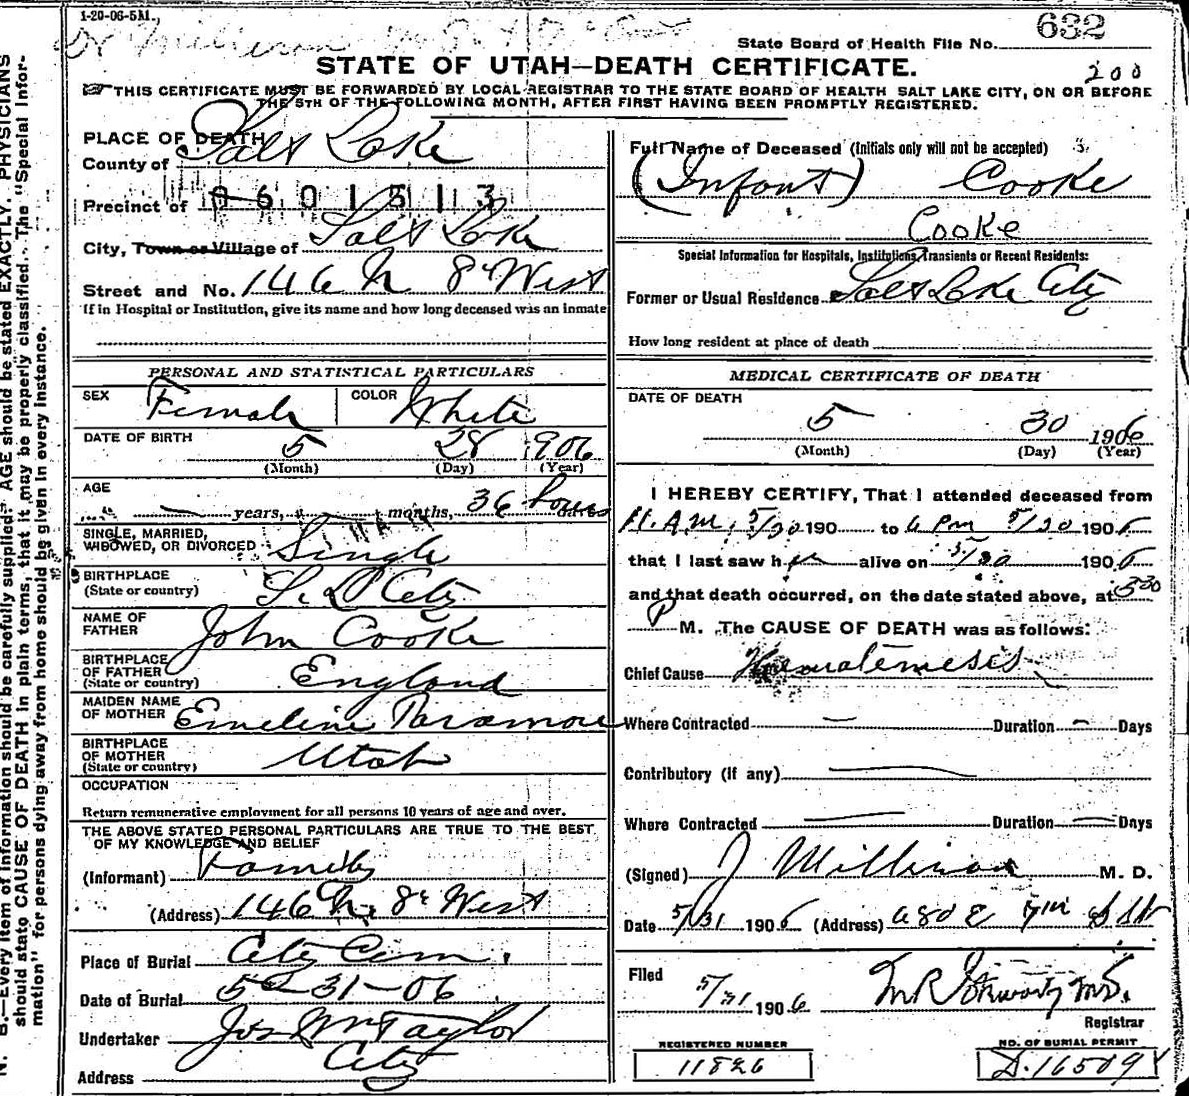 1-20-06-5M.
State Board of Health File No. 632
STATE OF UTAH—DEATH CERTIFICATE.
200
THIS CERTIFICATE MUST BE FORWARDED BY LOCAL REGISTRAR TO THE STATE BOARD OF HEALTH SALT LAKE CITY, ON OR BEFORE
THE 5TH OF THE FOLLOWING MONTH, AFTER FIRST HAVING BEEN PROMPTLY REGISTERED.
PLACE OF DEATH
County of Salt Lake
Precinct of 0601513
City, Town or Village of Salt Lake
Street and No. 146 N 8th West
If in Hospital or Institution, give its name and how long deceased was an inmate
PERSONAL AND STATISTICAL PARTICULARS
SEX Female COLOR White
DATE OF BIRTH 5 28 1906
(Month) (Day) (Year)
AGE — years, months, 36 hours
SINGLE, MARRIED,
WIDOWED, OR DIVORCED Single
BIRTHPLACE
(State or country) S. L City
NAME OF
FATHER John Cooke
BIRTHPLACE
OF FATHER
(State or country) England
MAIDEN NAME
OF MOTHER Emeline Paramore
BIRTHPLACE
OF MOTHER
(State or country) Utah
OCCUPATION
Return remunerative employment for all persons 10 years of age and over.
THE ABOVE STATED PERSONAL PARTICULARS ARE TRUE TO THE BEST
OF MY KNOWLEDGE AND BELIEF
(Informant) Family
(Address) 146 N. 8th West
Place of Burial City Cem.
Date of Burial 5-31-06
Undertaker Jos Wm Taylor
Address City
Full Name of Deceased (Initials only will not be accepted)
(Infant) Cooke
Cooke
Special Information for Hospitals, Institutions, Transients or Recent Residents:
Former or Usual Residence Salt Lake City
How long resident at place of death
MEDICAL CERTIFICATE OF DEATH
DATE OF DEATH
5 30 1906
(Month) (Day) (Year)
I HEREBY CERTIFY, That I attended deceased from
11. A.M. 5/30 190 to 6 PM 5/30 1906
that I last saw her alive on 5/30 1906
and that death occurred, on the date stated above, at 5 30
P M. The CAUSE OF DEATH was as follows:
Chief Cause Hematemesis
Where Contracted — Duration — Days
Contributory (if any) —
Where Contracted — Duration — Days
(Signed) J Milliron M. D.
Date 5/31 1906 (Address) E S St
Filed 5/31 1906 M R M.D.
Registrar
REGISTERED NUMBER
11826
NO. OF BURIAL PERMIT
D.16509
N. B.—Every item of information should be carefully supplied. AGE should be stated EXACTLY. PHYSICIANS
should state CAUSE OF DEATH in plain terms, that it may be properly classified. The "Special Infor-
mation" for persons dying away from home should be given in every instance.